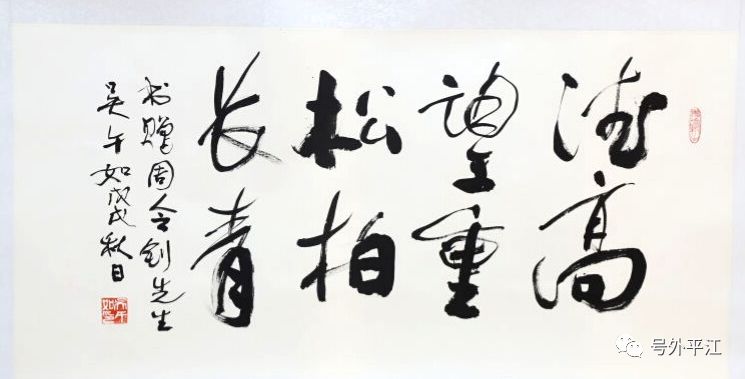 德高
望重
松柏
长青
书赠周令钊先生
吴午如戊戌秋日
号外平江